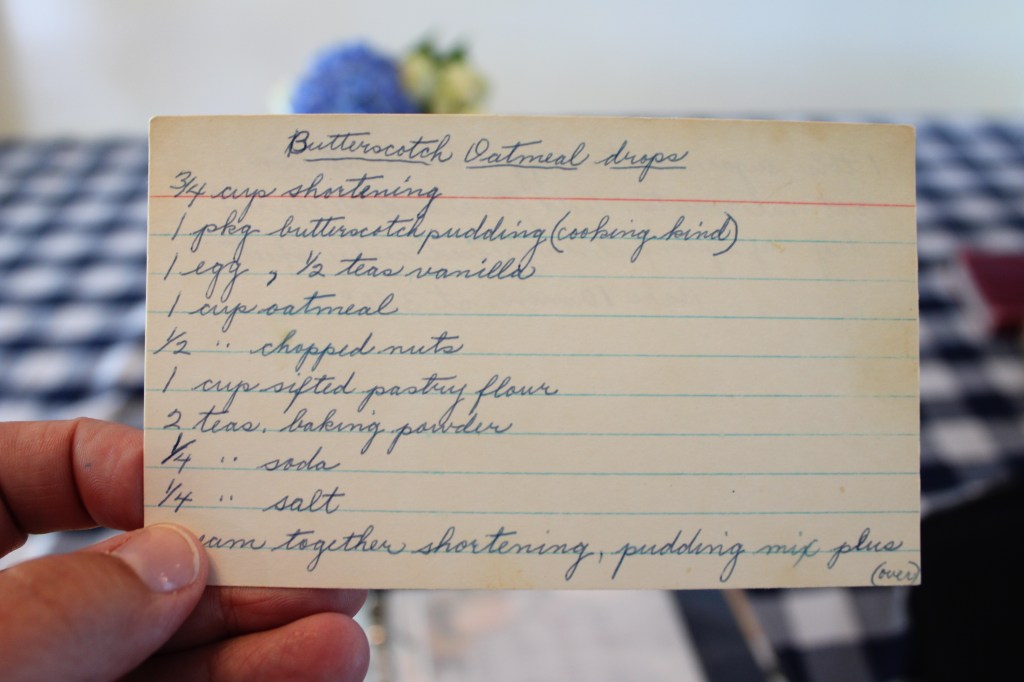 Butterscotch Oatmeal drops
3/4 cup shortening
1 pkg butterscotch pudding (cooking kind)
1 egg, 1/2 teas vanilla
1 cup oatmeal
1/2 " chopped nuts
1 cup sifted pastry flour
2 teas. baking powder
1/4 " soda
1/4 " salt
together shortening, pudding mix plus
(over)